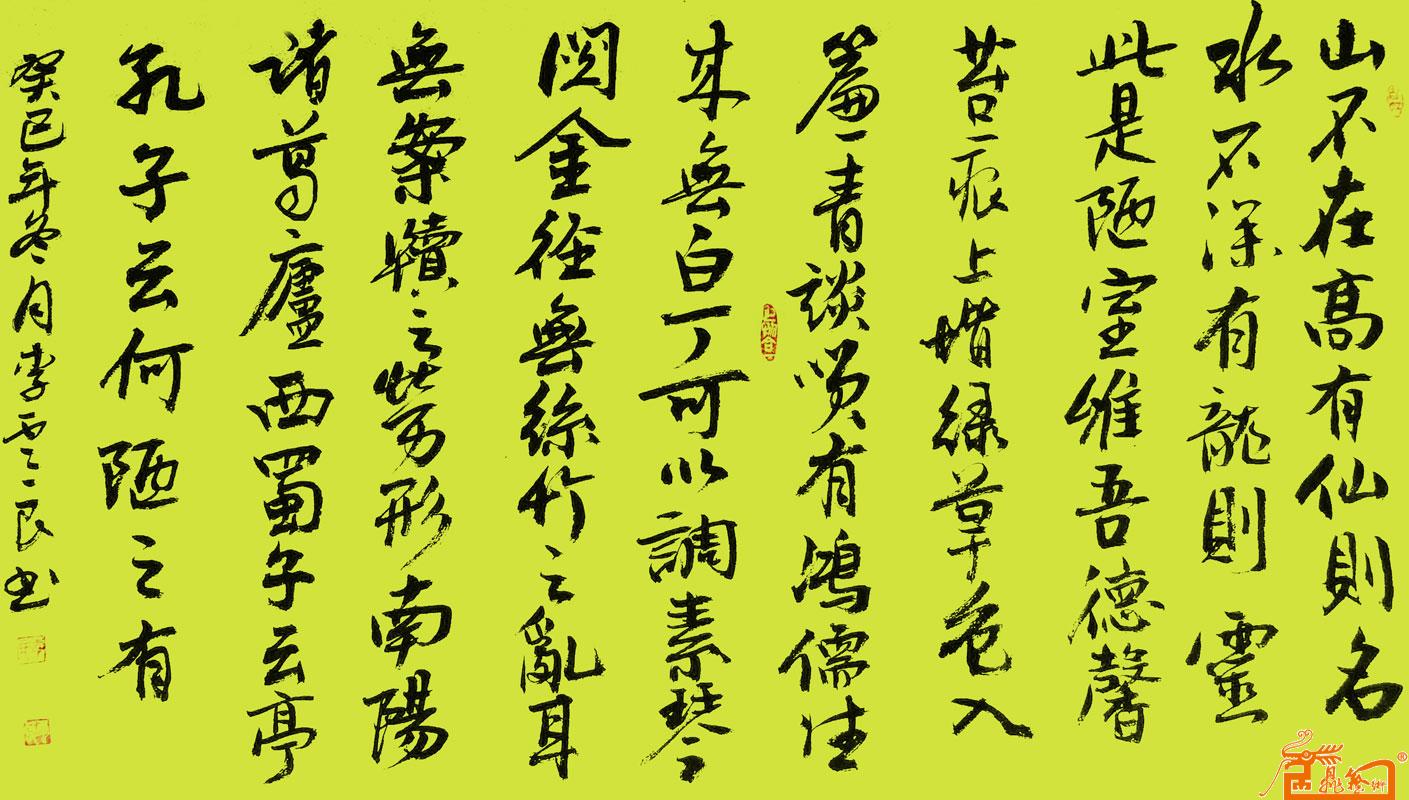 山不在高有仙則名
水不深有龍則靈
此是陋室惟吾德馨
苔痕上堦緑草色入
簾青談咲有鴻儒往
來無白丁可以調素琴
閱金徑無絲竹之亂耳
無案牘之勞形南陽
諸葛廬西蜀子云亭
孔子云何陋之有
癸巳年冬月李雲良书